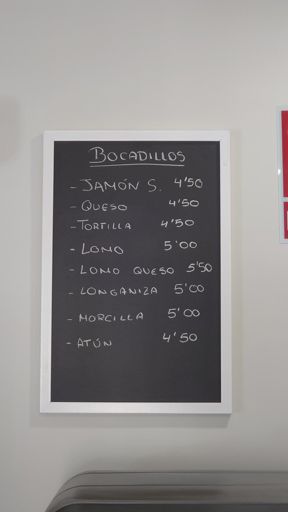 BOCADILLOS
- JAMÓN S. 4'50
- QUESO 4'50
- TORTILLA 4'50
- LOMO 5'00
- LOMO QUESO 5'50
- LONGANIZA 5'00
- MORCILLA 5'00
- ATÚN 4'50